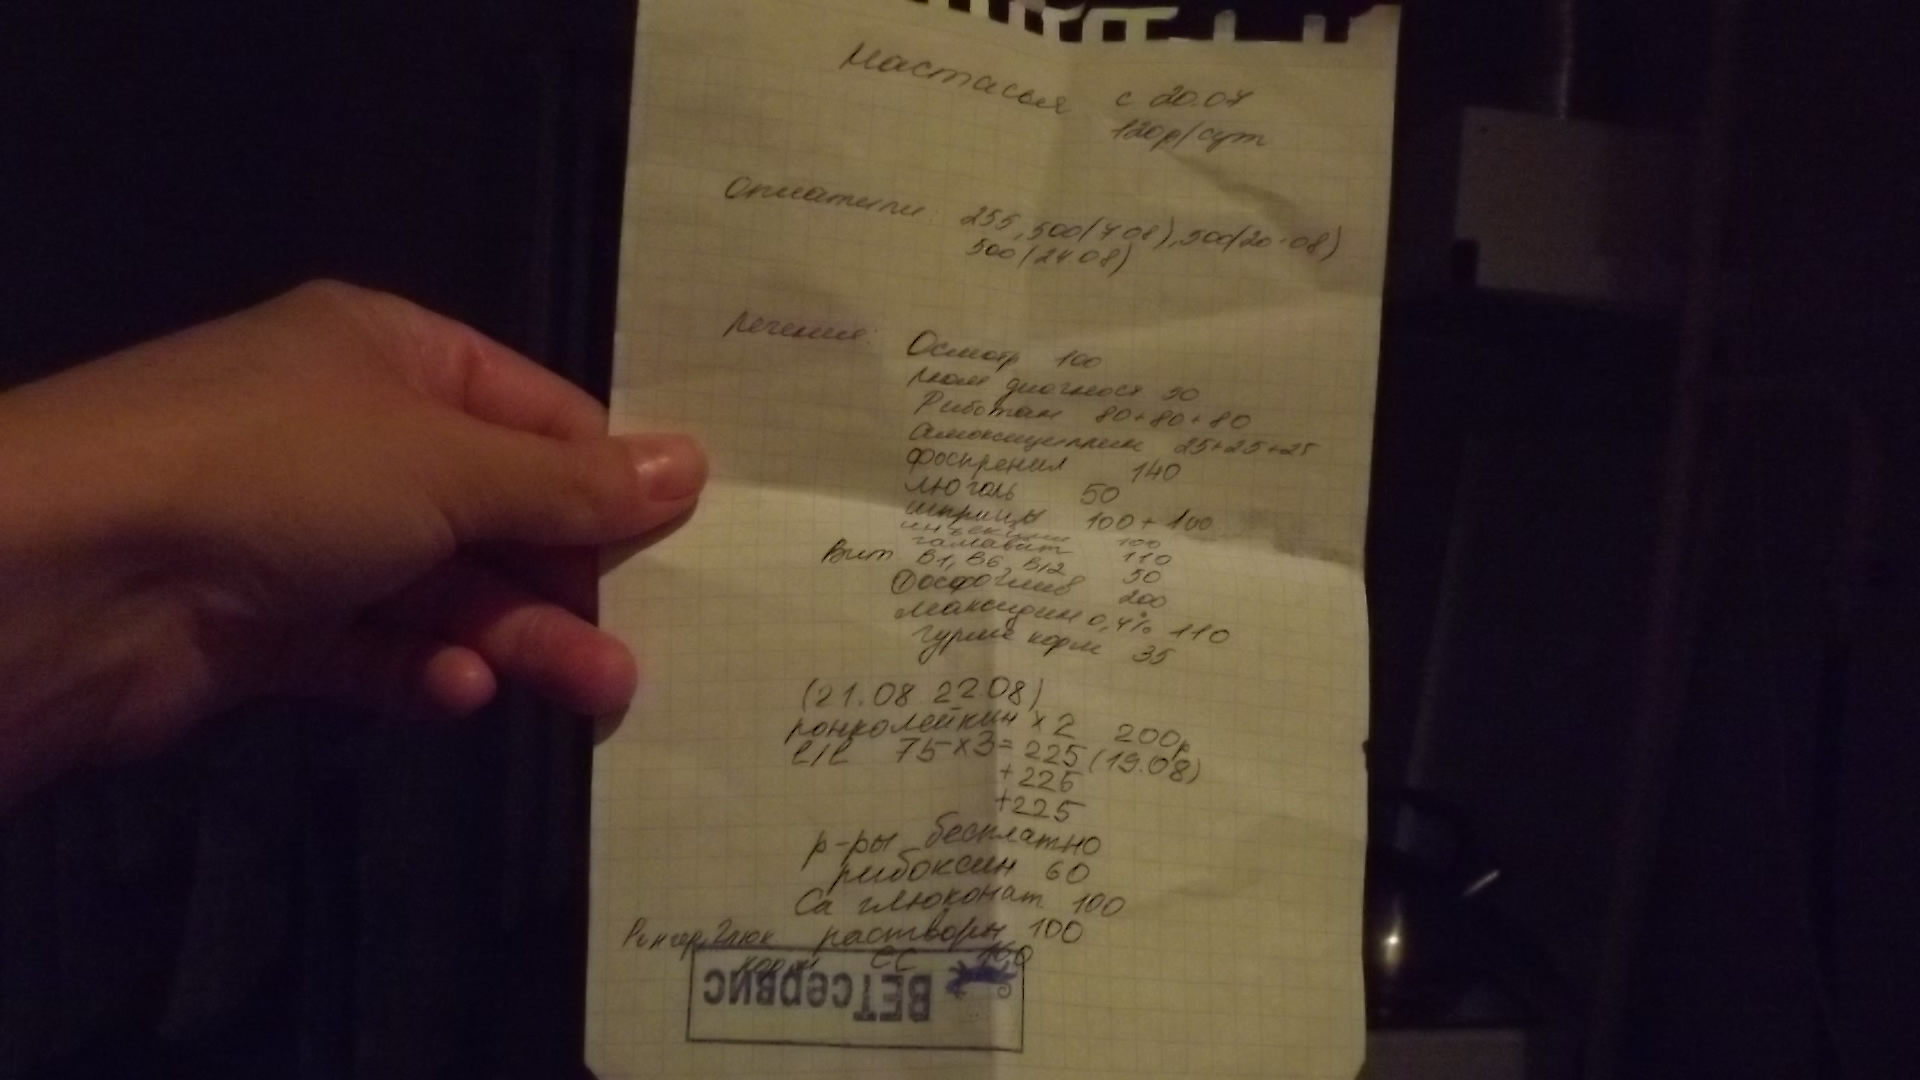 Настасья с 20.07
120р/сут
Оплатили: 255, 500(7.08), 500(20.08)
500(24.08)
Лечение: Осмотр 100
люм диагност 50
Риботан 80+80+80
Амоксициллин 25+25+25
фоспренил 140
люголь 50
шприцы 100+100
инъекции 100
гамавит 110
Вит В1, В6, В12 50
Фосфоглив 200
Максидин 0,4% 110
гурме корм 35
(21.08 22.08)
ронколейкин х 2 200р
75х3=225 (19.08)
+225
+225
р-ры бесплатно
рибоксин 60
Ca глюконат 100
Рингер, Глюк растворы 100
корм СС
ВЕТсервис